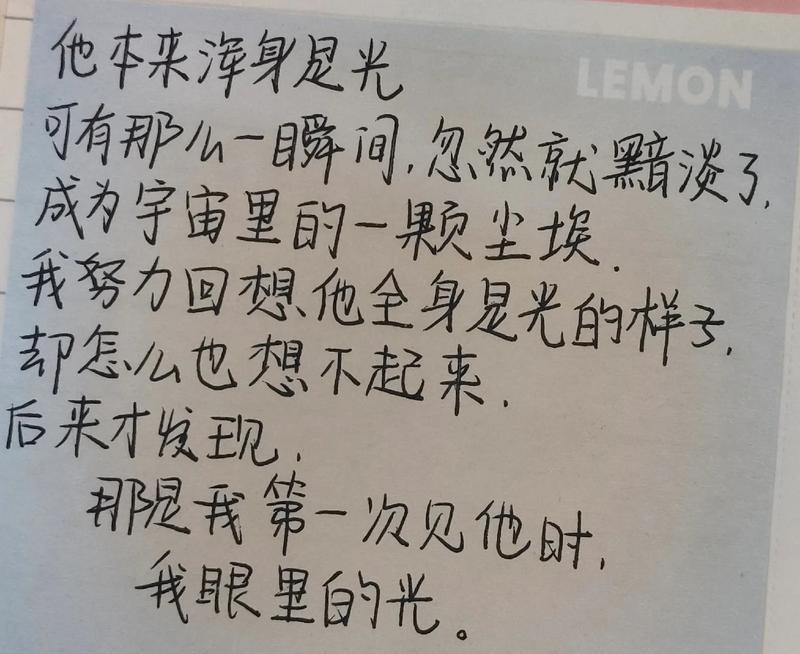 LEMON
他本来浑身是光
可有那么一瞬间,忽然就黯淡了,
成为宇宙里的一颗尘埃.
我努力回想他全身是光的样子,
却怎么也想不起来.
后来才发现,
那是我第一次见他时,
我眼里的光。